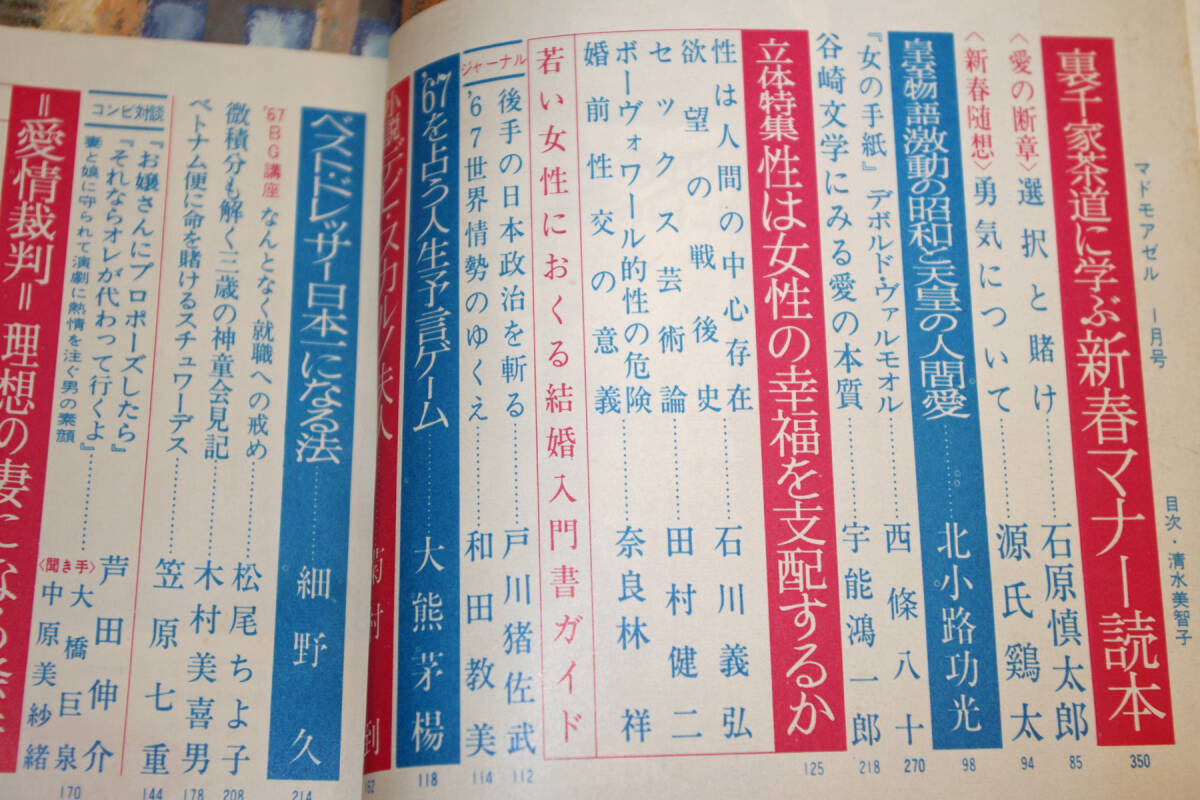 マドモアゼル 一月号
目次・清水美智子
裏千家茶道に学ぶ新春マナー読本
350
〈愛の断章〉選択と賭け……石原慎太郎
85
〈新春随想〉勇気について……源氏鶏太
94
皇室物語激動の昭和と天皇の人間愛……北小路功光
98
『女の手紙』デボルド・ヴァルモオル……西條八十
270
谷崎文学にみる愛の本質……宇能鴻一郎
218
立体特集 性は女性の幸福を支配するか
125
性は人間の中心存在……石川義弘
欲望の戦後史
セックス芸術論……田村健二
ボーヴォワール的性の危険
婚前性交の意義……奈良林祥
若い女性におくる結婚入門書ガイド
ジャーナル
後手の日本政治を斬る……戸川猪佐武
112
'67世界情勢のゆくえ……和田教美
114
'67を占う人生予言ゲーム……大熊茅楊
118
小説デヴィ・スカルノ夫人
村 到
162
ベスト・ドレッサー日本一になる法……細野久
214
'67BG講座 なんとなく就職への戒め……松尾ちよ子
208
微積分も解く三歳の神童会見記……木村美喜男
178
ベトナム便に命を賭けるスチュワーデス……笠原七重
144
コンビ対談
『お嬢さんにプロポーズしたら』
『それならオレが代わって行くよ』……芦田伸介
大橋巨泉
妻と娘に守られて演劇に熱情を注ぐ男の素顔
〈聞き手〉中原美紗緒
170
=愛情裁判=理想の妻になる